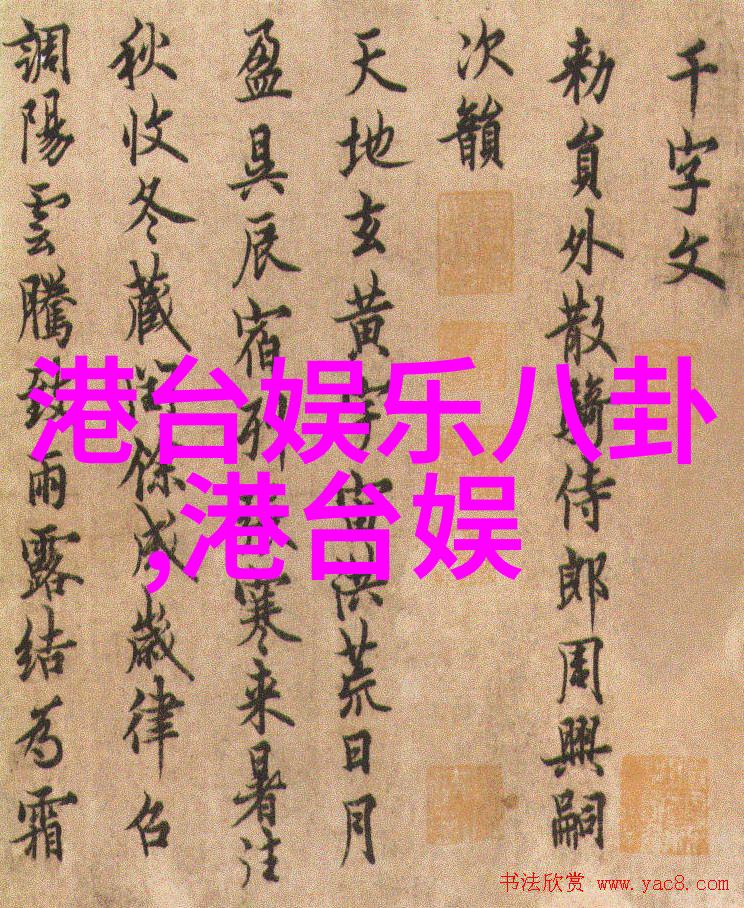 千字文
勑員外散騎侍郎周興嗣
次韻
天地玄黄宇宙洪荒日月
盈昃辰宿列寒来暑往
秋收冬蔵閏餘成歲律召
調陽雲騰致雨露結為霜
港台娱乐八卦
,港台娱
书法欣赏 www.yac8.com